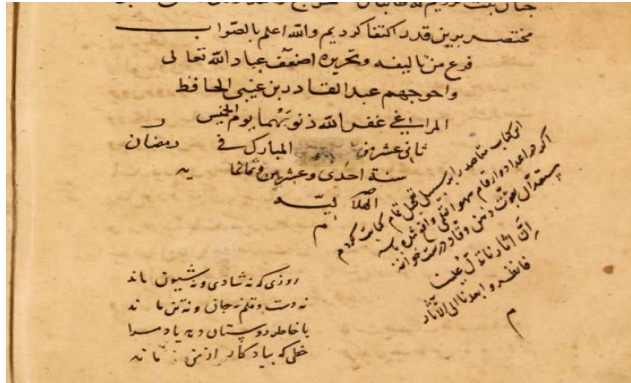 مختصر برین قدر اکتفا کردیم والله اعلم بالصواب
فرغ من تالیفه و تحریره اضعف عباد الله تعالی
واحوجهم عبد القادر بن غیبی الحافظ
المراغی غفر الله ذنوبهما یوم الخمیس
ثانی عشرین المبارک فی رمضان
سنة احدی و عشرین و ثمانمایه
الهلالیه
م
این کتاب مقاصد را بر سبیل تمام کتابت کردم
اگر در اعداد و ارقام سهو القلمی واقع شده باشد
ذهن وقاد درست خوانند
ان آثارنا تدل علینا
فانظروا بعدنا الی الآثار
م
روزی که نه شادی و نه شیون ماند
نه دست و قلم نه جان و نه تن ماند
با خاطر دوستان دهد یاد مرا
خطی که بیادگار از من ماند